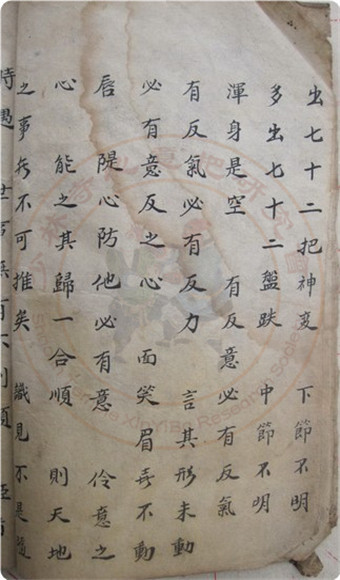 出七十二把神变 下節不明
多出七十二盤跌 中節不明
渾身是空 有反意必有反氣
有反氣必有反力 言其形未動
必有意反之心 面笑眉喜不動
唇 隄心防他必有意 伶意之
心 能之其歸一合順 則天地
之事无不可推矣 識見不是
時遇